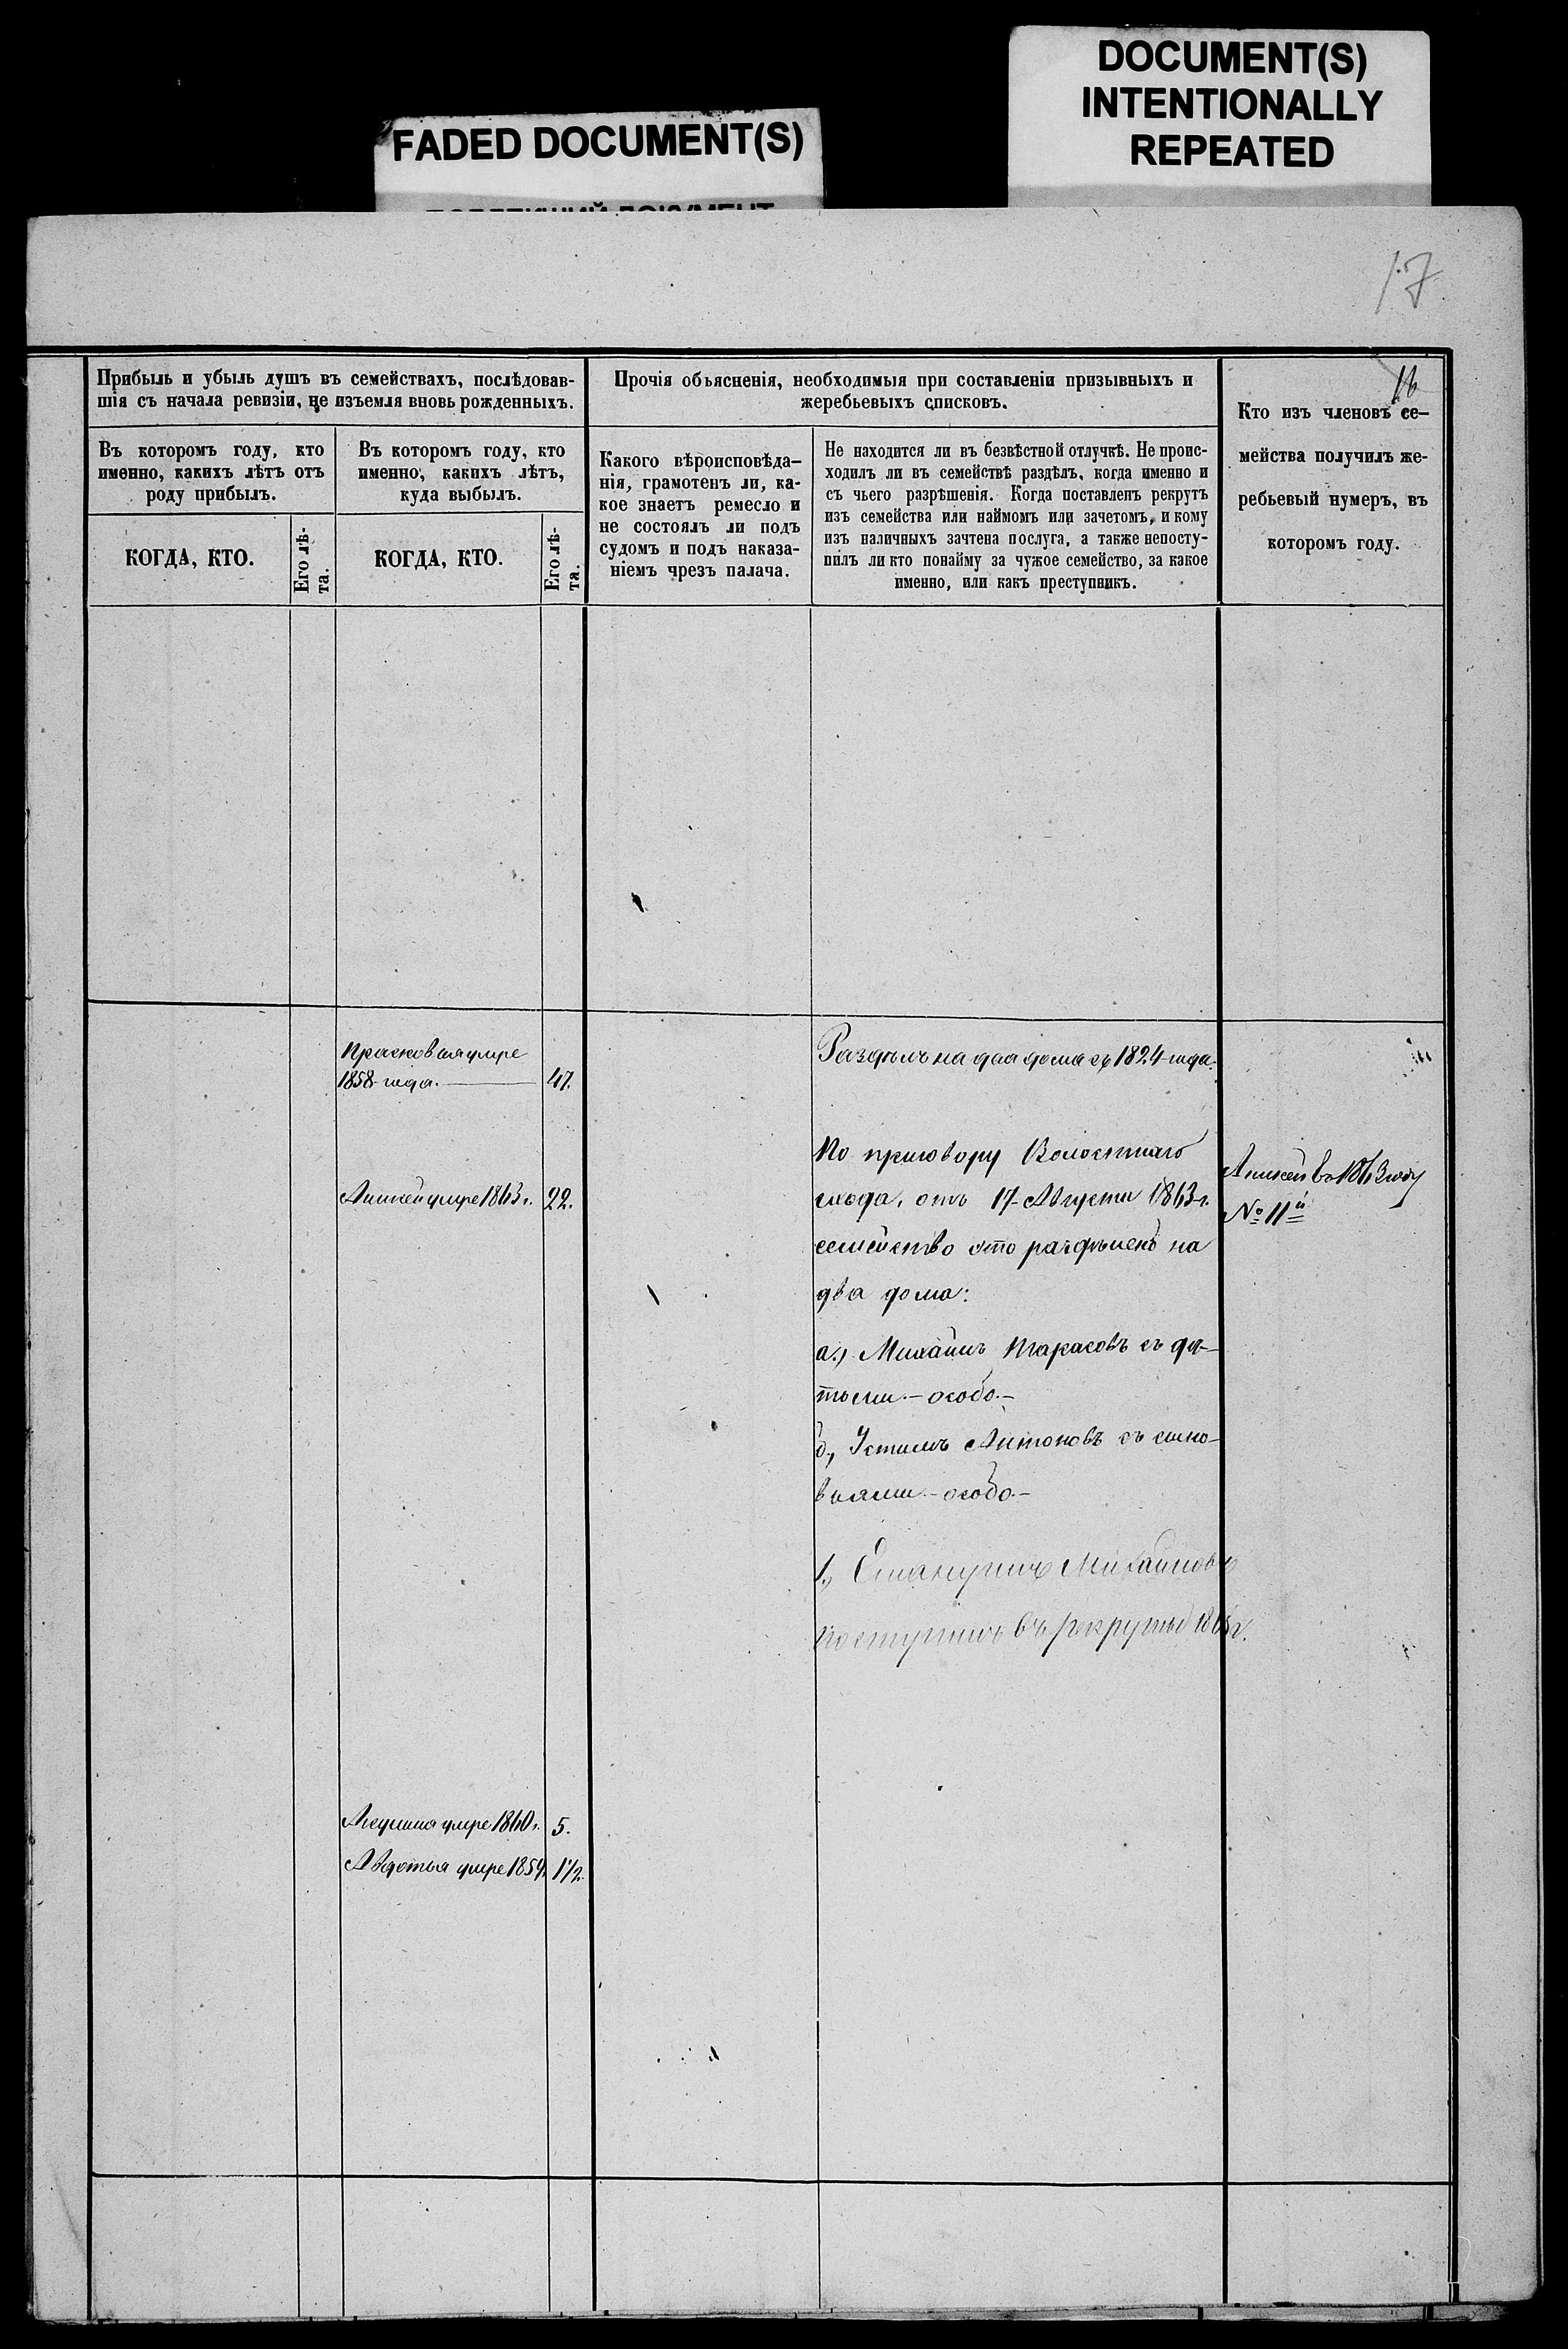 DOCUMENT(S)
INTENTIONALLY
REPEATED
FADED DOCUMENT(S)
17
16
Прибыль и убыль душъ въ семействахъ, послѣдовав-
шія съ начала ревизіи, не изъемля вновь рожденныхъ.
Въ которомъ году, кто
именно, какихъ лѣтъ отъ
роду прибылъ.
КОГДА, КТО.
Его лѣ-
та.
Въ которомъ году, кто
именно, какихъ лѣтъ,
куда выбылъ.
КОГДА, КТО.
Его лѣ-
та.
Прочія объясненія, необходимыя при составленіи призывныхъ и
жеребьевыхъ списковъ.
Какого вѣроисповѣда-
нія, грамотенъ ли, ка-
кое знаетъ ремесло и
не состоялъ ли подъ
судомъ и подъ наказа-
ніемъ чрезъ палача.
Не находится ли въ безвѣстной отлучкѣ. Не проис-
ходилъ ли въ семействѣ раздѣлъ, когда именно и
съ чьего разрѣшенія. Когда поставленъ рекрутъ
изъ семейства или наймомъ или зачетомъ, и кому
изъ наличныхъ зачтена послуга, а также непосту-
пилъ ли кто понайму за чужое семейство, за какое
именно, или какъ преступникъ.
Кто изъ членовъ се-
мейства получилъ же-
ребьевый нумеръ, въ
которомъ году.
Прасковья умре
1858 года. 47.
Раздѣлъ на два дома съ 1824 года.
По приговору Волостнаго
схода, отъ 17 Августа 1863 г.
семейство это раздѣлено на
два дома:
а., Михаилъ Тарасовъ съ дѣ-
тьми - особо.-
б., Устинъ Антоновъ съ сыно-
вьями - особо.-
1., Михайловъ
поступилъ въ рекруты 1865 г.
умре 1863 г. 22.
въ 1863 году
№ 11й
Акулина умре 1860 г. 5.
Авдотья умре 1859. 1½.